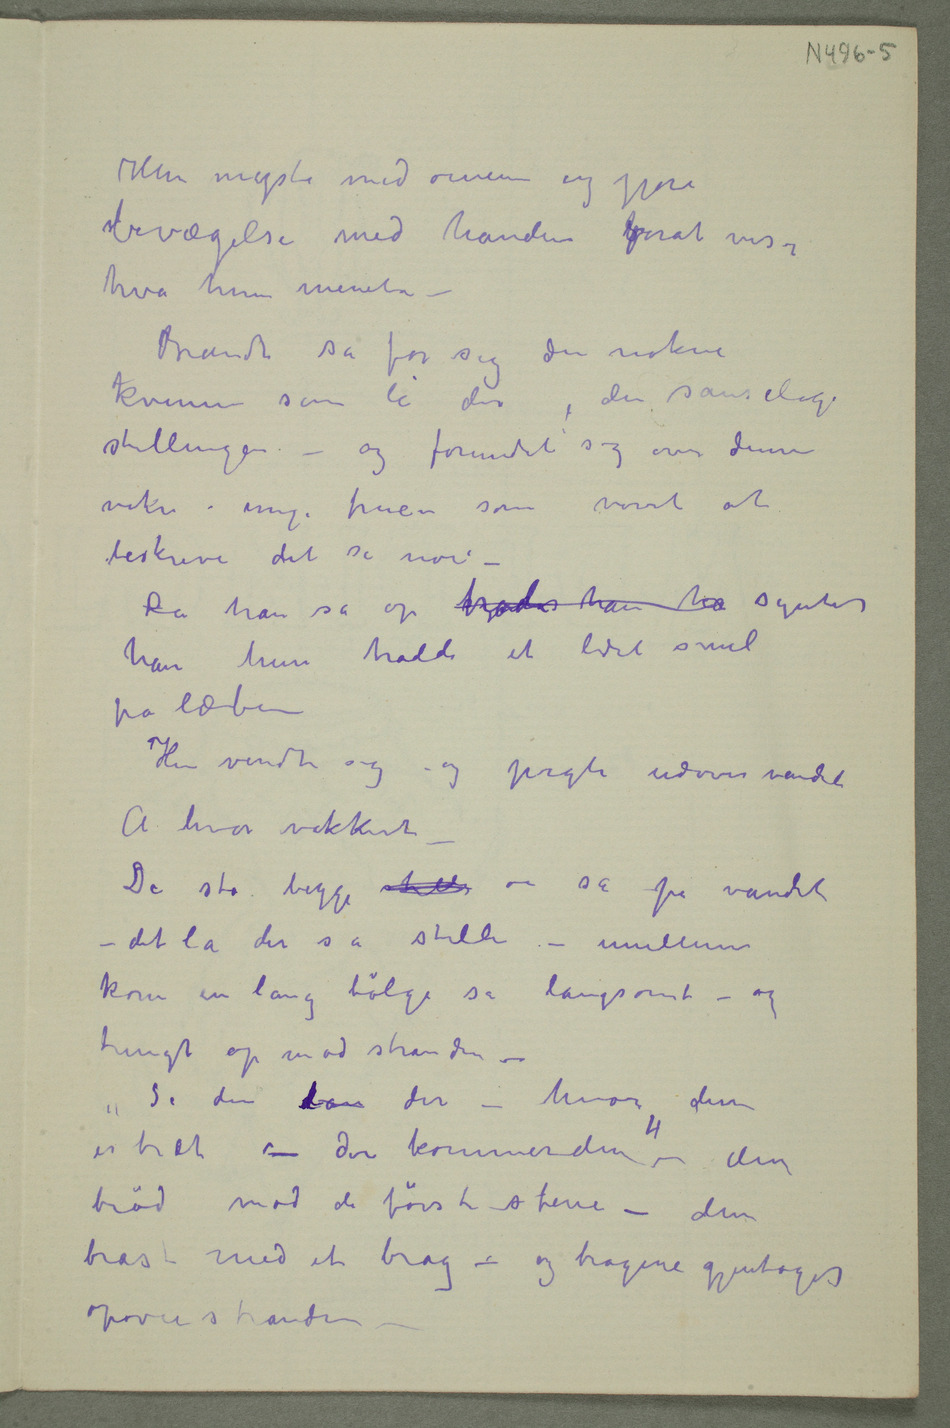 N496-5
Hun mystes med øinene og gjøre
bevægelse med handen forat vise
hva hun mente –
Brandt sa for sig den nøkne
kvinne som lå der, den sanselige
stillingen – og forundret sig over denne
vakre unge fruen som vovet at
beskreve det så nøie –
Da han så op trødes han ha syntes
han hun hadde et lidet smil
på læben
Hun vendte sig og pegte udover vandet
A hvor vakkert –
De sto begge stille og så på vandet
– det la der så stille – imellem
kom en lang bölge så langsomt – og
tungt op mod stranden –
„Se den lan der – hvor den
er bræt – der kommer den" – den
bröd mod de förste stene – den
brast med et brag – og bragene gjentages
opover stranden –